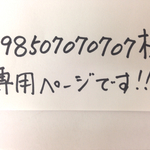 98507070707様
専用ページです!!